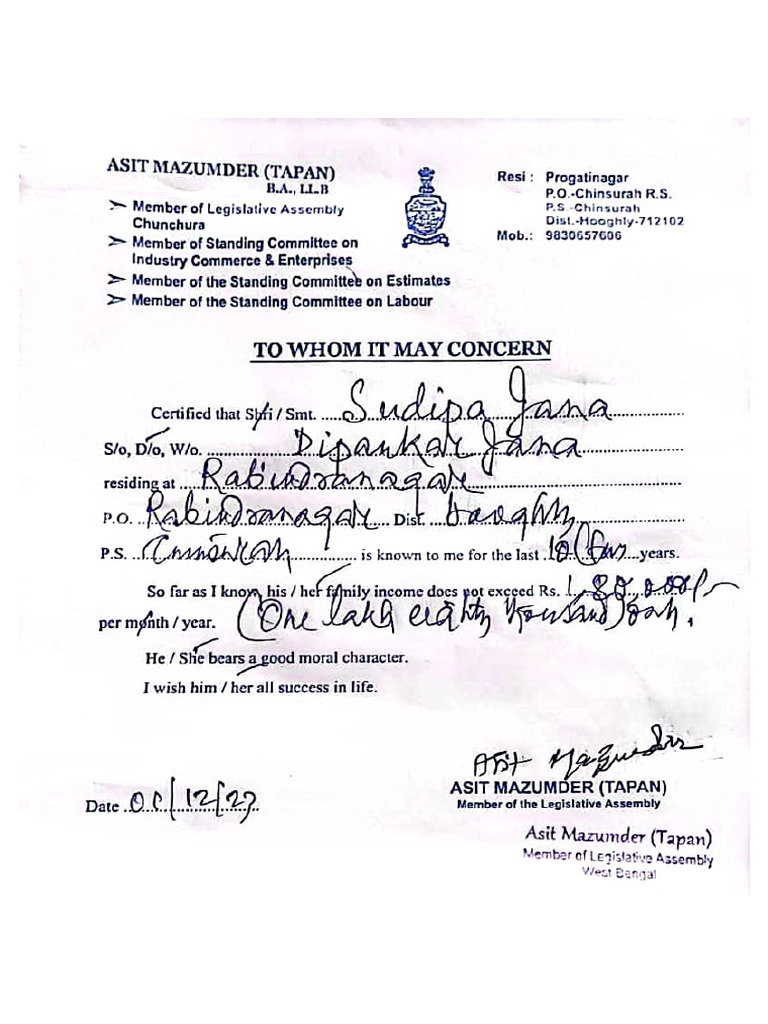 ASIT MAZUMDER (TAPAN)
B.A., LL.B
➢ Member of Legislative Assembly
Chunchura
➢ Member of Standing Committee on
Industry Commerce & Enterprises
➢ Member of the Standing Committee on Estimates
➢ Member of the Standing Committee on Labour
Resi : Progatinagar
P.O.-Chinsurah R.S.
P.S.-Chinsurah
Dist.-Hooghly-712102
Mob.: 9830657606
TO WHOM IT MAY CONCERN
Certified that Shri / Smt. Sudipa Jana
S/o, D/o, W/o. Dipankar Jana
residing at Rabindranagar
P.O. Rabindranagar Dist. Hooghly
P.S. is known to me for the last 10 years.
So far as I know, his / her family income does not exceed Rs. 1,80,000/-
per month / year. (One lakh eighty thousand) only.
He / She bears a good moral character.
I wish him / her all success in life.
Asit Mazumder
ASIT MAZUMDER (TAPAN)
Member of the Legislative Assembly
Date /12/
Asit Mazumder (Tapan)
Member of Legislative Assembly
West Bengal